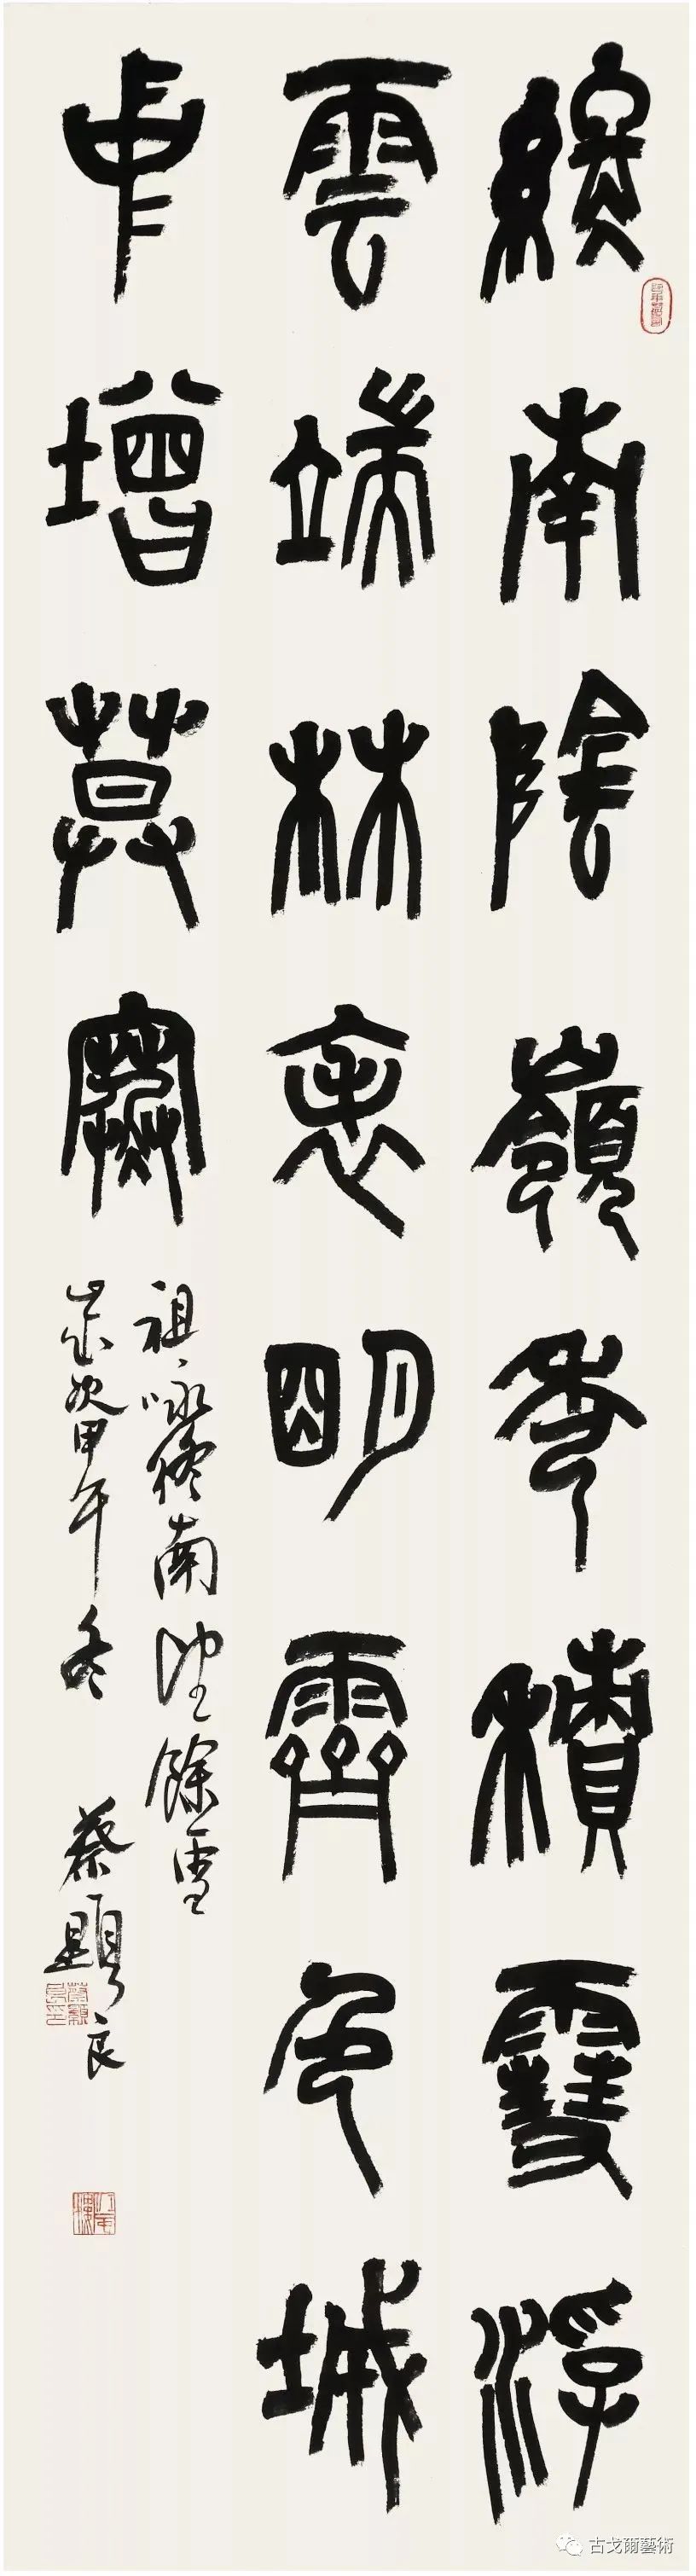 終南陰嶺秀積雪浮
雲端林表明霽色城
中增莫寒
祖咏終南望餘雪
歲次甲午冬 蔡顯良
古戈爾藝術